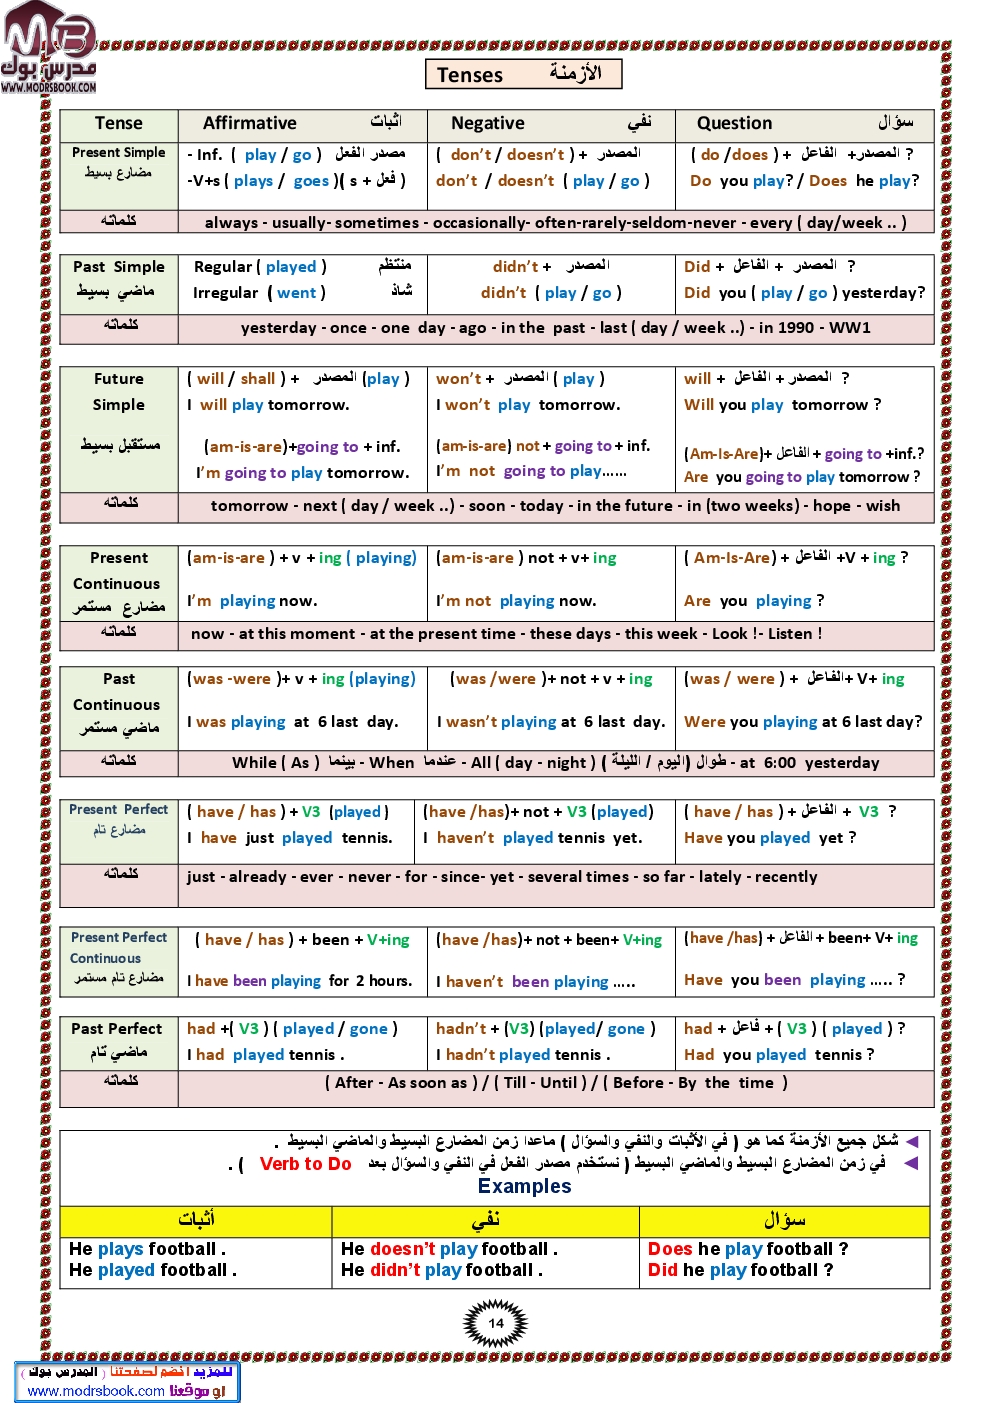 MB
مدرس بوك
WWW.MODRSBOOK.COM
Tenses الأزمنة
Tense Affirmative اثبات Negative نفي Question سؤال
Present Simple - Inf. ( play / go ) مصدر الفعل ( don't / doesn't ) + المصدر ( do /does ) + الفاعل +المصدر ?
مضارع بسيط -V+s ( plays / goes )( s + فعل ) don't / doesn't ( play / go ) Do you play? / Does he play?
كلماته always - usually- sometimes - occasionally- often-rarely-seldom-never - every ( day/week .. )
Past Simple Regular ( played ) منتظم didn't + المصدر Did + الفاعل + المصدر ?
ماضي بسيط Irregular ( went ) شاذ didn't ( play / go ) Did you ( play / go ) yesterday?
كلماته yesterday - once - one day - ago - in the past - last ( day / week ..) - in 1990 - WW1
Future ( will / shall ) + المصدر (play ) won't + المصدر ( play ) will + الفاعل + المصدر ?
Simple I will play tomorrow. I won't play tomorrow. Will you play tomorrow ?
مستقبل بسيط (am-is-are)+going to + inf. (am-is-are) not + going to + inf. (Am-Is-Are)+ الفاعل + going to +inf.?
I'm going to play tomorrow. I'm not going to play...... Are you going to play tomorrow ?
كلماته tomorrow - next ( day / week ..) - soon - today - in the future - in (two weeks) - hope - wish
Present (am-is-are ) + v + ing ( playing) (am-is-are ) not + v+ ing ( Am-Is-Are) + الفاعل +V + ing ?
Continuous
مضارع مستمر I'm playing now. I'm not playing now. Are you playing ?
كلماته now - at this moment - at the present time - these days - this week - Look !- Listen !
Past (was -were )+ v + ing (playing) (was /were )+ not + v + ing (was / were ) + الفاعل+ V+ ing
Continuous
ماضي مستمر I was playing at 6 last day. I wasn't playing at 6 last day. Were you playing at 6 last day?
كلماته While ( As ) بينما - When عندما - All ( day - night ) ( طوال (اليوم / الليلة - at 6:00 yesterday
Present Perfect ( have / has ) + V3 (played ) (have /has)+ not + V3 (played) ( have / has ) + الفاعل + V3 ?
مضارع تام I have just played tennis. I haven't played tennis yet. Have you played yet ?
كلماته just - already - ever - never - for - since- yet - several times - so far - lately - recently
Present Perfect ( have / has ) + been + V+ing (have /has)+ not + been+ V+ing (have /has) + الفاعل + been+ V+ ing
Continuous
مضارع تام مستمر I have been playing for 2 hours. I haven't been playing ..... Have you been playing ..... ?
Past Perfect had +( V3 ) ( played / gone ) hadn't + (V3) (played/ gone ) had + فاعل + ( V3 ) ( played ) ?
ماضي تام I had played tennis . I hadn't played tennis . Had you played tennis ?
كلماته ( After - As soon as ) / ( Till - Until ) / ( Before - By the time )
شكل جميع الأزمنة كما هو ( في الأثبات والنفي والسؤال ) ماعدا زمن المضارع البسيط والماضي البسيط .
في زمن المضارع البسيط والماضي البسيط ( نستخدم مصدر الفعل في النفي والسؤال بعد Verb to Do ) .
Examples
أثبات نفي سؤال
He plays football . He doesn't play football . Does he play football ?
He played football . He didn't play football . Did he play football ?
14
للمزيد انضم لصفحتنا ( المدرس بوك )
او موقعنا www.modrsbook.com